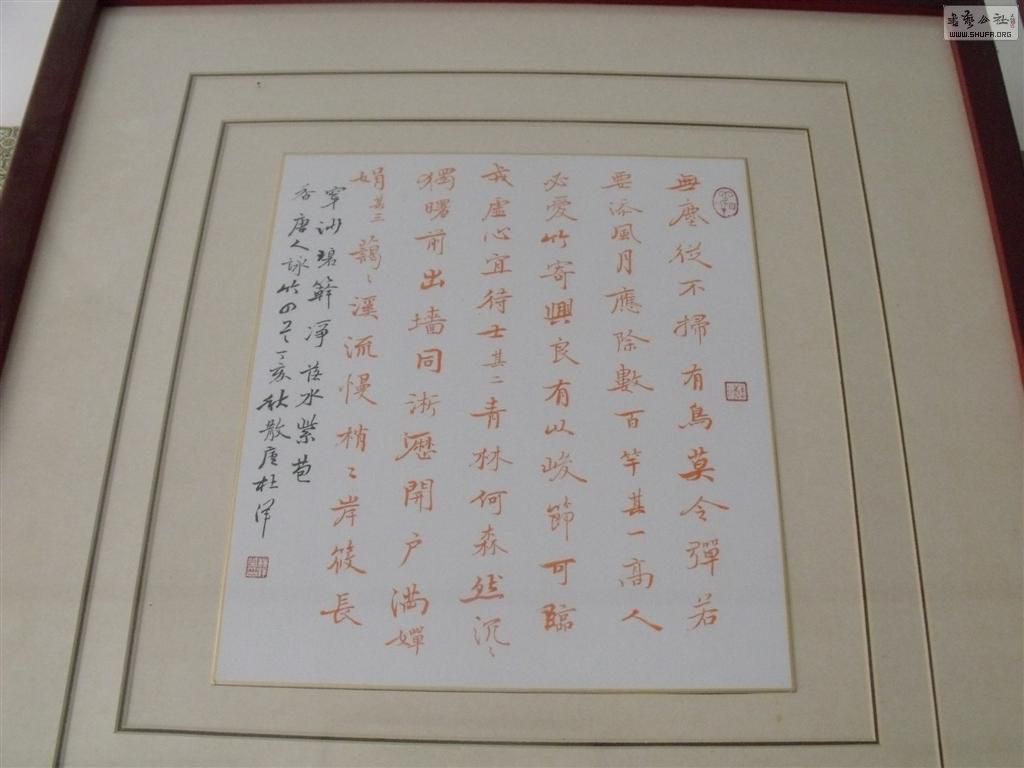 無塵從不掃有鳥莫令彈若
要添風月應除數百竿其一高人
必愛竹寄興良有以峻節可臨
戎虛心宜待士其二青林何森然沉〻
獨曙前出墻同淅瀝開戶滿嬋
娟其三藹〻溪流慢梢〻岸筱長
穿沙碧簳淨落水紫苞
香唐人詠竹四之丁亥秋散廬杜
WWW.SHUFA.ORG